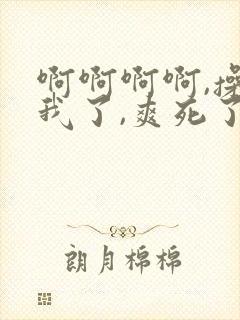 啊啊啊啊,操
我了,爽死了
朗月棉棉